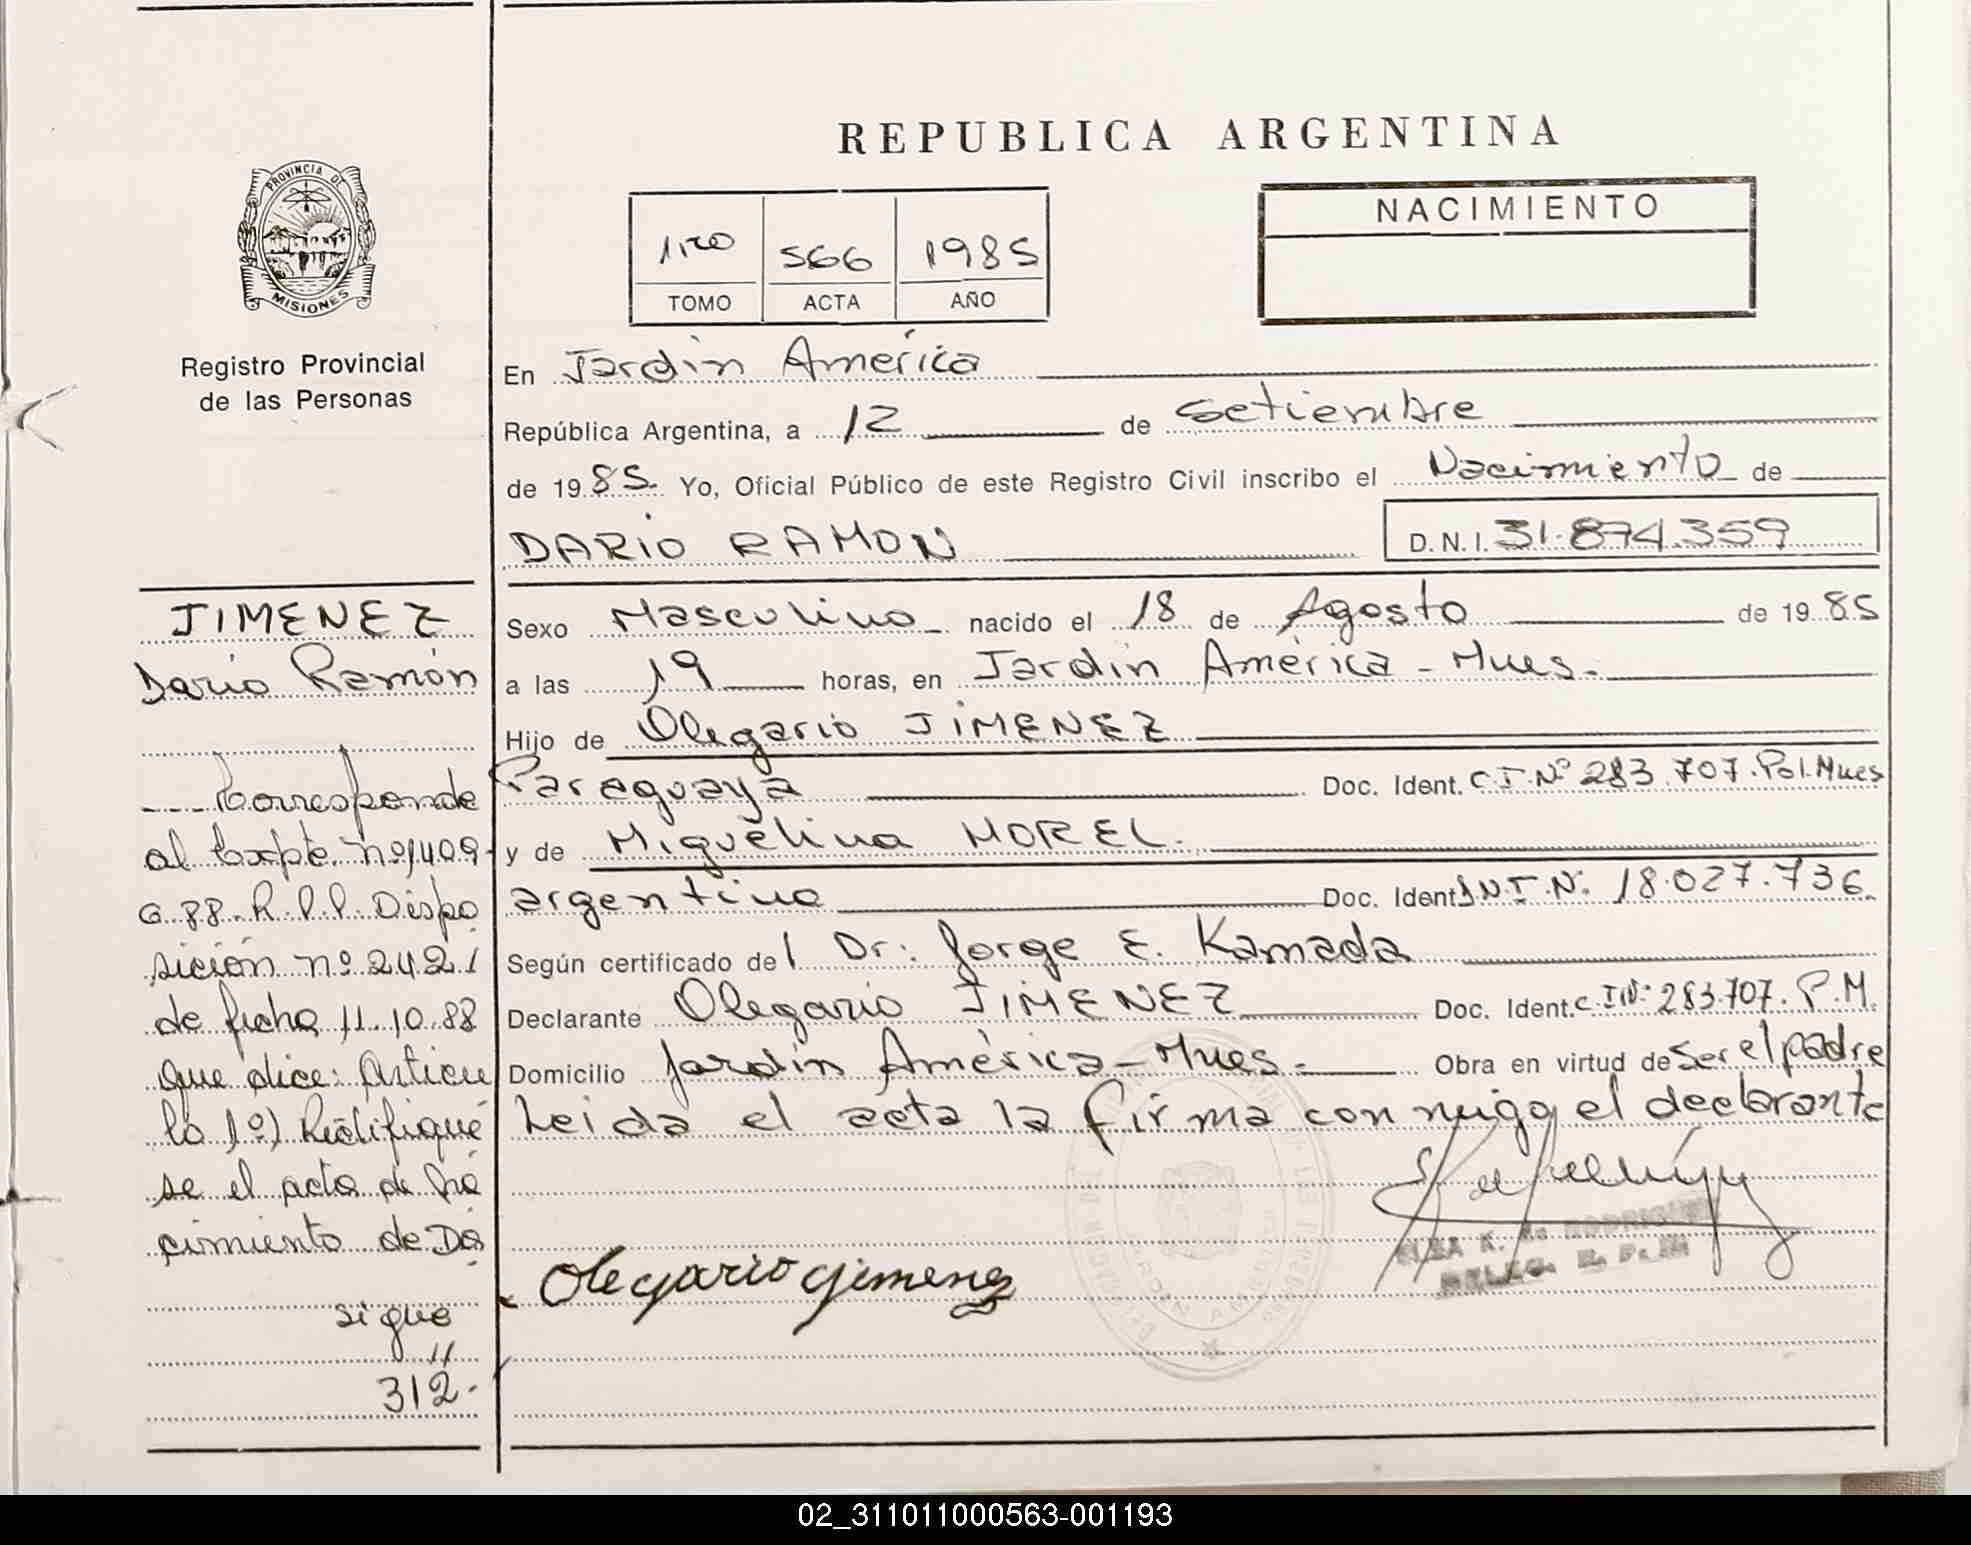 REPUBLICA ARGENTINA
PROVINCIA DE
MISIONES
Registro Provincial
de las Personas
1ro 566 1985
TOMO ACTA AÑO
NACIMIENTO
En Jardín América
República Argentina, a 12 de Setiembre
de 1985. Yo, Oficial Público de este Registro Civil inscribo el Nacimiento de
DARIO RAMON D.N.I. 31.874.359
Sexo Masculino nacido el 18 de Agosto de 1985
a las 19 horas, en Jardín América - Mnes.
Hijo de Olegario JIMENEZ
Paraguaya Doc. Ident. C.I.Nº 283.707.Pol.Mnes
y de Miguelina MOREL.
argentina Doc. Ident. D.N.I.Nº. 18.027.736
Según certificado del Dr: Jorge E. Kamada
Declarante Olegario JIMENEZ Doc. Ident. C.INº 283.707. P.M.
Domicilio Jardín América - Mnes. Obra en virtud de ser el padre
Leida el acta la firma con migo el declarante
Olegario Gimenez
ELSA K. de RODRIGUEZ
DELEG. R. P. P.
JARDIN AMERICA
JIMENEZ
Dario Ramón
Corresponde
al Expte. nº 1409-
G.88.R.P.P. Dispo
sición nº 2421
de fecha 11.10.88
que dice: Articu
lo 1º) Rectifiqué
se el acta de Na
cimiento de Da
sigue
//
312.
02_311011000563-001193